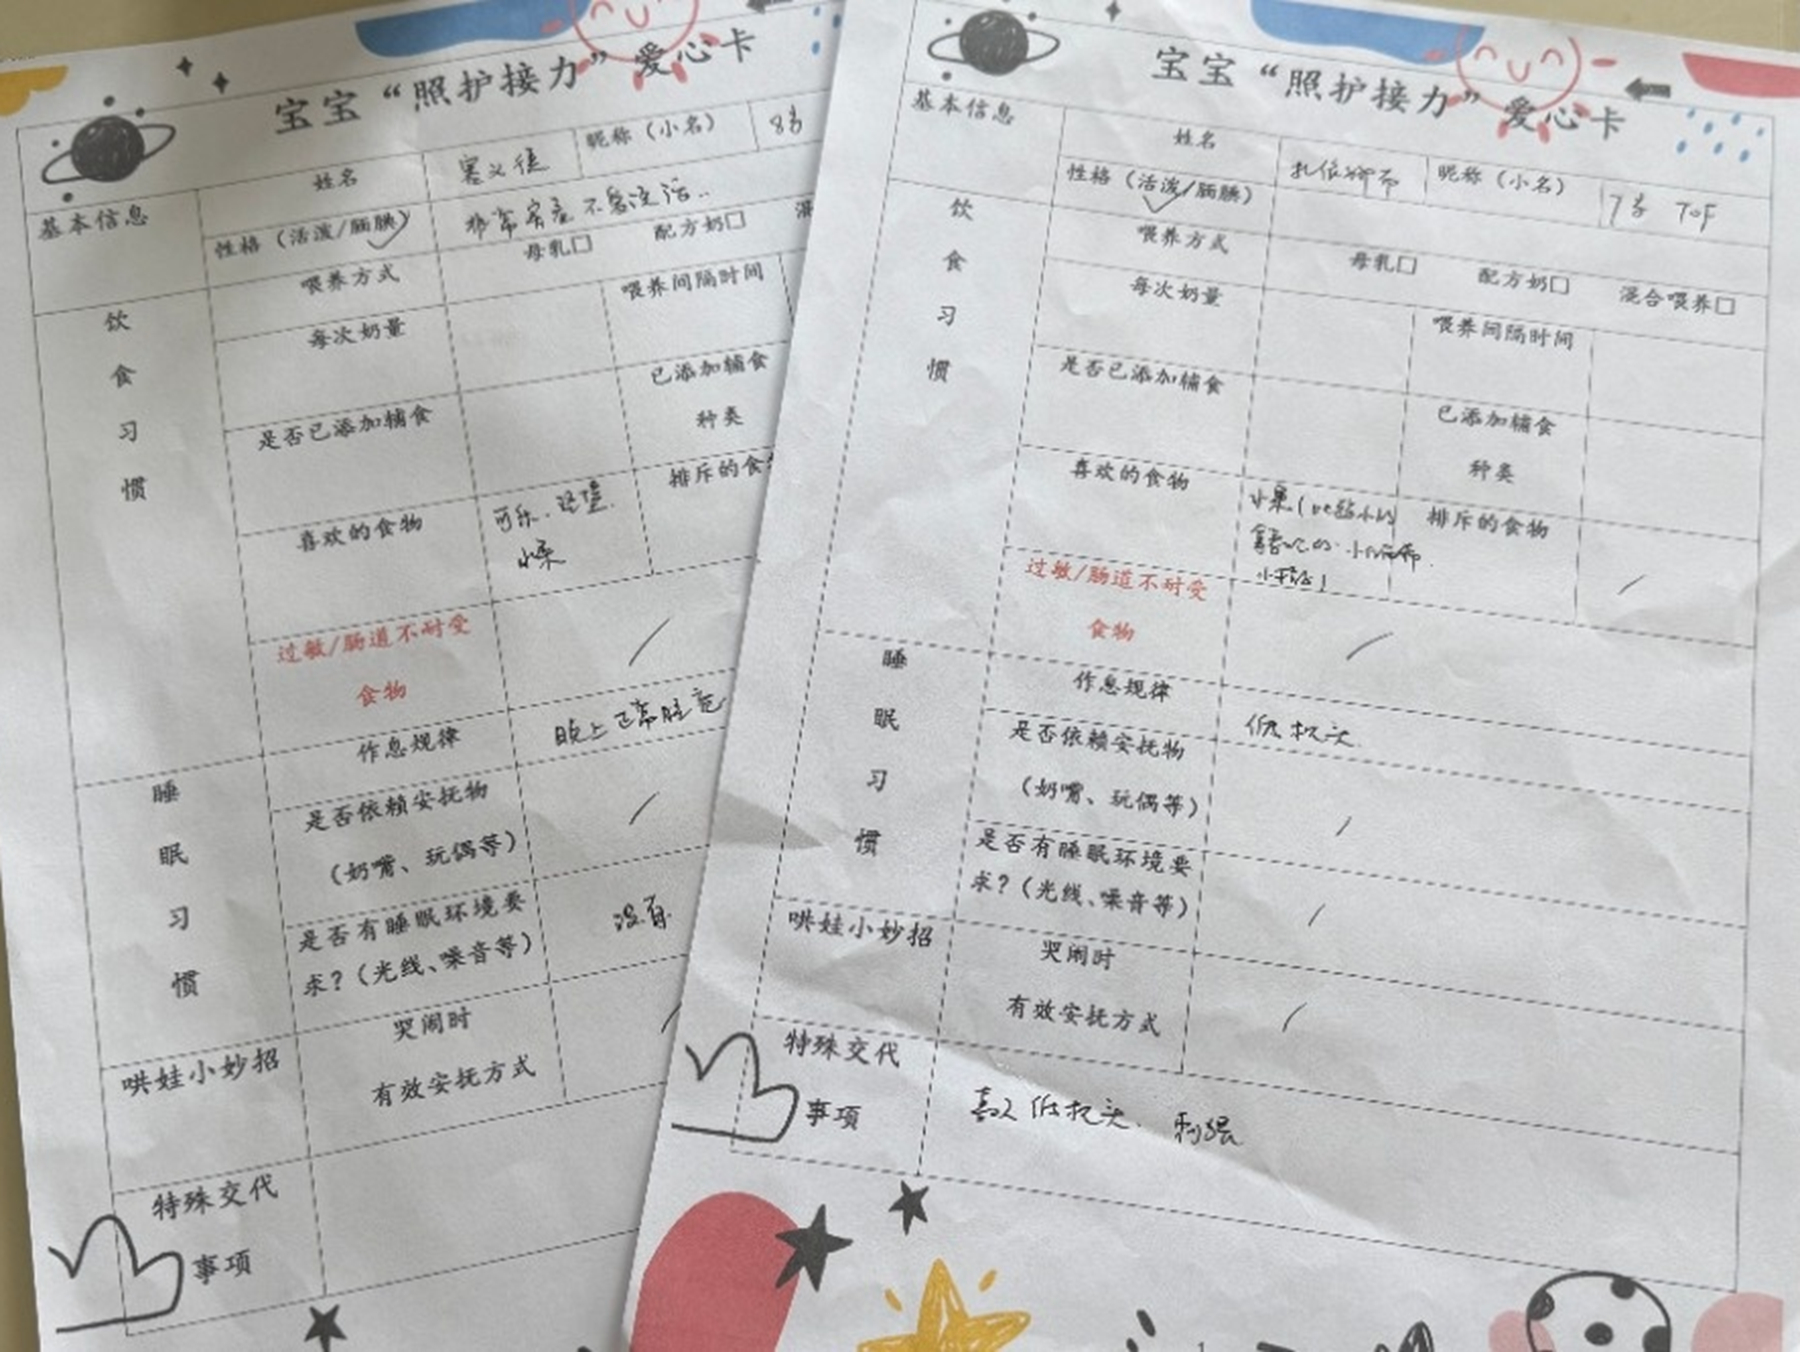 宝宝“照护接力”爱心卡
基本信息
姓名
昵称（小名）
8岁
性格（活泼/腼腆）
非常 不
喂养方式
母乳□
配方奶□
混
饮食习惯
每次奶量
喂养间隔时间
是否已添加辅食
已添加辅食
种类
喜欢的食物
可乐、汉堡、
水果
排斥的食
过敏/肠道不耐受
食物
/
睡眠习惯
作息规律
晚上正常睡觉
是否依赖安抚物
（奶嘴、玩偶等）
/
是否有睡眠环境要
求？（光线、噪音等）
没有
哄娃小妙招
哭闹时
有效安抚方式
/
特殊交代
事项
宝宝“照护接力”爱心卡
基本信息
姓名
昵称（小名）
7岁 TOF
性格（活泼/腼腆）
饮食习惯
喂养方式
母乳□
配方奶□
混合喂养□
每次奶量
喂养间隔时间
是否已添加辅食
已添加辅食
种类
喜欢的食物
水果（
排斥的食物
/
过敏/肠道不耐受
食物
/
睡眠习惯
作息规律
低枕头
是否依赖安抚物
（奶嘴、玩偶等）
/
是否有睡眠环境要
求？（光线、噪音等）
/
哄娃小妙招
哭闹时
有效安抚方式
/
特殊交代
事项
喜欢低枕头.